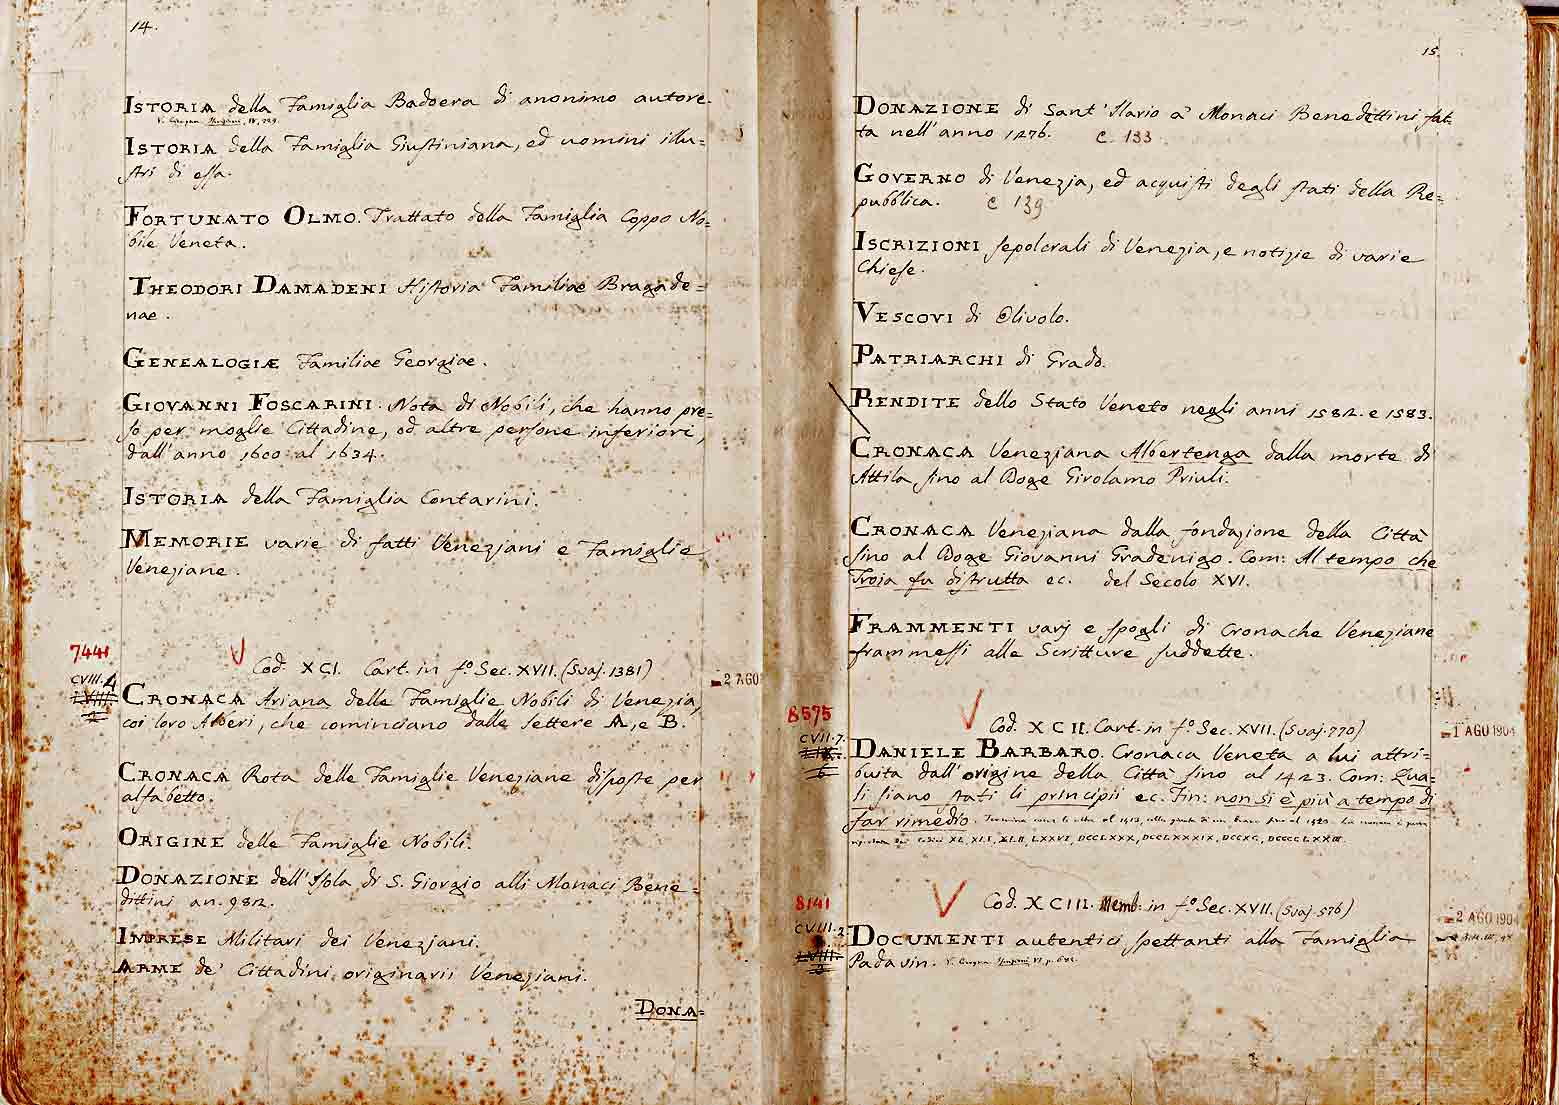 14.
ISTORIA della Famiglia Badoera di anonimo autore.
V. Cicogna Iscrizioni, IV, 729.
ISTORIA della Famiglia Giustiniana, ed uomini illu=
stri di essa.
FORTUNATO OLMO. Trattato della Famiglia Coppo No=
bile Veneta.
THEODORI DAMADENI Historia Familiae Bragade=
nae.
GENEALOGIÆ Familiae Georgiae.
GIOVANNI FOSCARINI. Nota di Nobili, che hanno pre=
so per moglie Cittadine, od altre persone inferiori,
dall'anno 1600 al 1634.
ISTORIA della Famiglia Contarini.
MEMORIE varie di fatti Veneziani e Famiglie
Veneziane.
7441
Cod. XCI. Cart. in fo. Sec. XVII. (Svaj. 1381)
CVIII. 4
2 AGO
CRONACA Ariana delle Famiglie Nobili di Venezia,
coi loro Alberi, che cominciano dalle lettere A, e B.
CRONACA Rota delle Famiglie Veneziane disposte per
alfabetto.
ORIGINE delle Famiglie Nobili.
DONAZIONE dell'Isola di S. Giorgio alli Monaci Bene=
dittini an. 982.
IMPRESE Militari dei Veneziani.
ARME de' Cittadini originarii Veneziani.
DONA=
15.
DONAZIONE di Sant'Ilario a' Monaci Benedettini fat=
ta nell'anno 1276. c. 133
GOVERNO di Venezia, ed acquisti degli stati della Re=
pubblica. c 139
ISCRIZIONI sepolcrali di Venezia, e notizie di varie
Chiese.
VESCOVI di Olivolo.
PATRIARCHI di Grado.
RENDITE dello Stato Veneto negli anni 1582. e 1583.
CRONACA Veneziana Albertenga dalla morte di
Attila sino al Doge Girolamo Priuli.
CRONACA Veneziana dalla fondazione della Città
sino al Doge Giovanni Gradenigo. Com: Al tempo che
Troja fu distrutta ec. del Secolo XVI.
FRAMMENTI varj e spogli di Cronache Veneziane
frammessi alle Scritture suddette.
8575
Cod. XCII. Cart. in fo. Sec. XVII. (Svaj. 770)
CVII. 7.
1 AGO 1904
DANIELE BARBARO. Cronaca Veneta a lui attri=
buita dall'origine della Città sino al 1423. Com: Qua=
li siano stati li principii ec. Fin: non si è più a tempo di
far rimedio.
XL, XLI, XLII, LXXVI, DCCLXXX, DCCLXXXIX, DCCXC, DCCCCLXXIII.
8141
Cod. XCIII. Memb. in fo. Sec. XVII. (Svaj. 576)
CVIII. 3
2 AGO 1904
DOCUMENTI autentici spettanti alla Famiglia
Padavin. V. Cicogna Iscrizioni VI, p.